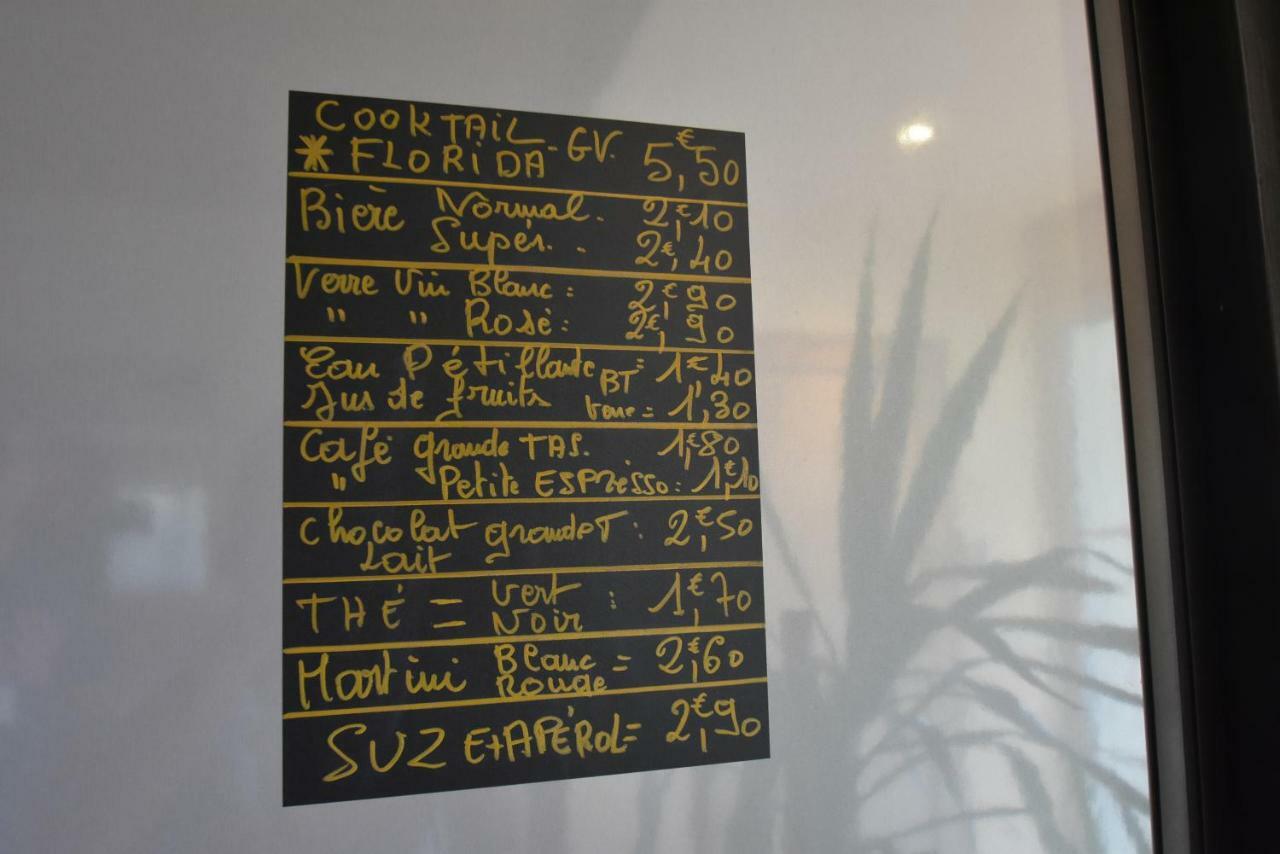 COOKTAIL
* FLORIDA - GV. 5,€50
Bière Normal. 2,€10
Supér. . 2€,40
Verre Vin Blanc : 2,€90
" " Rosé : 2€,90
Eau Pétillante BT = 1€40
Jus de fruits verre = 1',30
Café grande TAS. 1,€80
" Petite ESPresso : 1,€10
Chocolat grande T : 2,€50
Lait
THÉ = Vert : 1,€70
Noir
Martini Blanc = 2,€60
Rouge
SUZ Et APÉROL = 2,€90